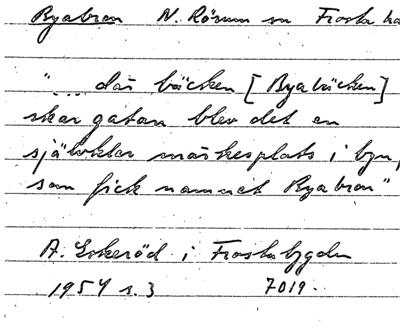 Byabron N. Rörum sn Frosta hd
"... där bäcken [Byabäcken]
skar gatan blev det en
självklar märkesplats i byn,
som fick namnet Byabron"
A. Eskeröd i Frostabygden
1954 s. 3 7019.